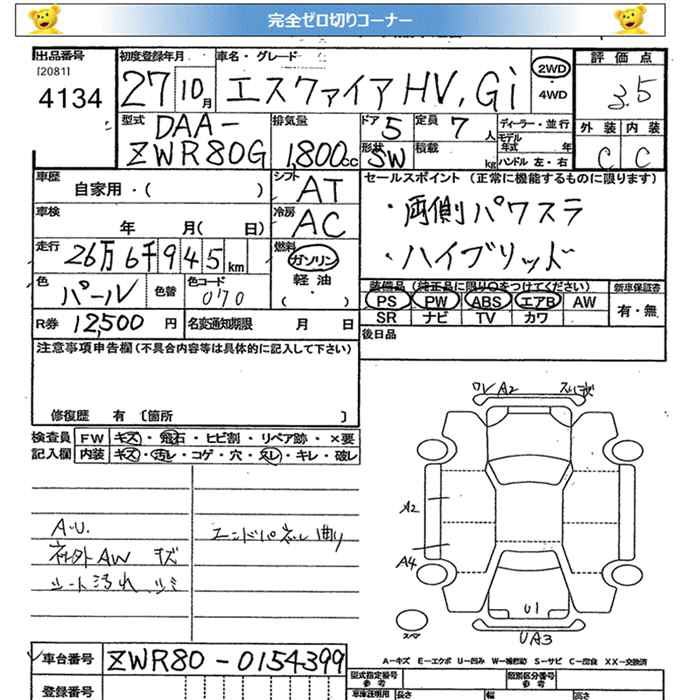 完全ゼロ切りコーナー
出品番号 初度登録年月 車名・グレード 評価点
[2081] 4134 27 10月 エスクァイアHV, Gi 2WD ・4WD 3.5
型式 DAA-ZWR80G 排気量 1,800cc ドア 5 定員 7人 ディーラー・並行 外装 内装
形状 SW 積載 kg モデル年式 年 ハンドル 左・右 C C
車歴 自家用・( ) シフト AT セールスポイント (正常に機能するものに限ります)
車検 年 月( 日) 冷房 AC ・両側パワスラ
走行 26万6千945km 燃料 ガソリン 軽油 ( ・ ) ・ハイブリッド
色 パール 色替 色コード 070 装備品 (純正品に限り○をつけてください) 新車保証書
PS PW ABS エアB AW 有・無
R券 12,500円 名変通知期限 月 日 SR ナビ TV カワ
注意事項申告欄(不具合内容等は具体的に記入して下さい) 後日品
修復歴 有 [箇所 ]
検査員 FW キズ・飛石・ヒビ割・リペア跡・×要
記入欄 内装 キズ・汚レ・コゲ・穴・スレ・キレ・破レ
ワレ A2
A2
A.U. エンドパネル曲り
社外AW キズ A4
シート汚れ、シミ
U1
スペア UA3
車台番号 ZWR80-0154399 A-キズ E-エクボ U-凹み W-補修跡 S-サビ C-腐食 XX-交換済
登録番号 型式指定番号 参考 類別区分番号 参考
車庫証明用 長さ 幅 高さ